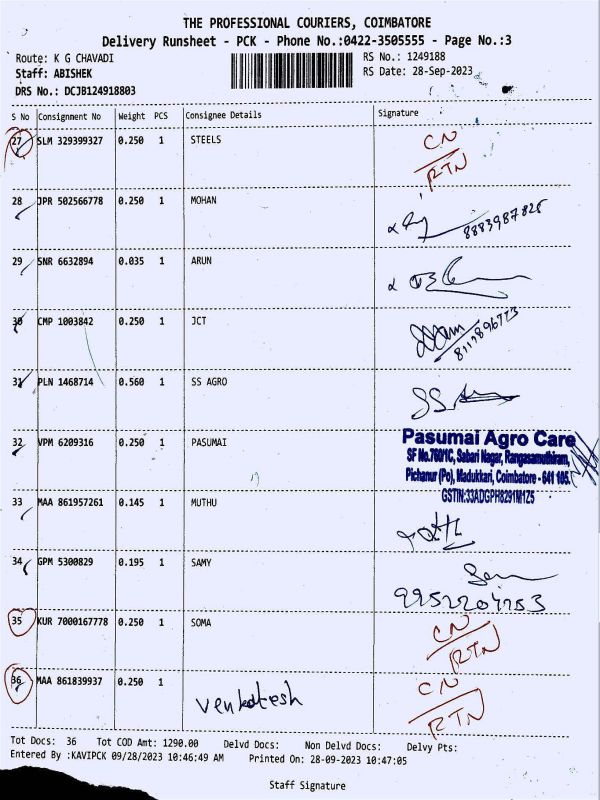 THE PROFESSIONAL COURIERS, COIMBATORE
Delivery Runsheet - PCK - Phone No.:0422-3505555 - Page No.:3
Route: K G CHAVADI RS No.: 1249188
Staff: ABISHEK RS Date: 28-Sep-2023
DRS No.: DCJB124918803
S No Consignment No Weight PCS Consignee Details Signature
27 SLM 329399327 0.250 1 STEELS CN
RTN
28 JPR 502566778 0.250 1 MOHAN
8883987825
29 SNR 6632894 0.035 1 ARUN
30 CMP 1003842 0.250 1 JCT
31 PLN 1468714 0.560 1 SS AGRO
32 VPM 6209316 0.250 1 PASUMAI
Pasumai Agro Care
SF No.760/1C, Sabari Nagar, Rangasamuthiram,
Pichanur (Po), Madukkari, Coimbatore - 641 105.
GSTIN:33ADGPH8291M1Z5
33 MAA 861957261 0.145 1 MUTHU
34 GPM 5300829 0.195 1 SAMY
35 KUR 7000167778 0.250 1 SOMA CN
RTN
36 MAA 861839937 0.250 1 CN
Venkatesh RTN
Tot Docs: 36 Tot COD Amt: 1290.00 Delvd Docs: Non Delvd Docs: Delvy Pts:
Entered By :KAVIPCK 09/28/2023 10:46:49 AM Printed On: 28-09-2023 10:47:05
Staff Signature